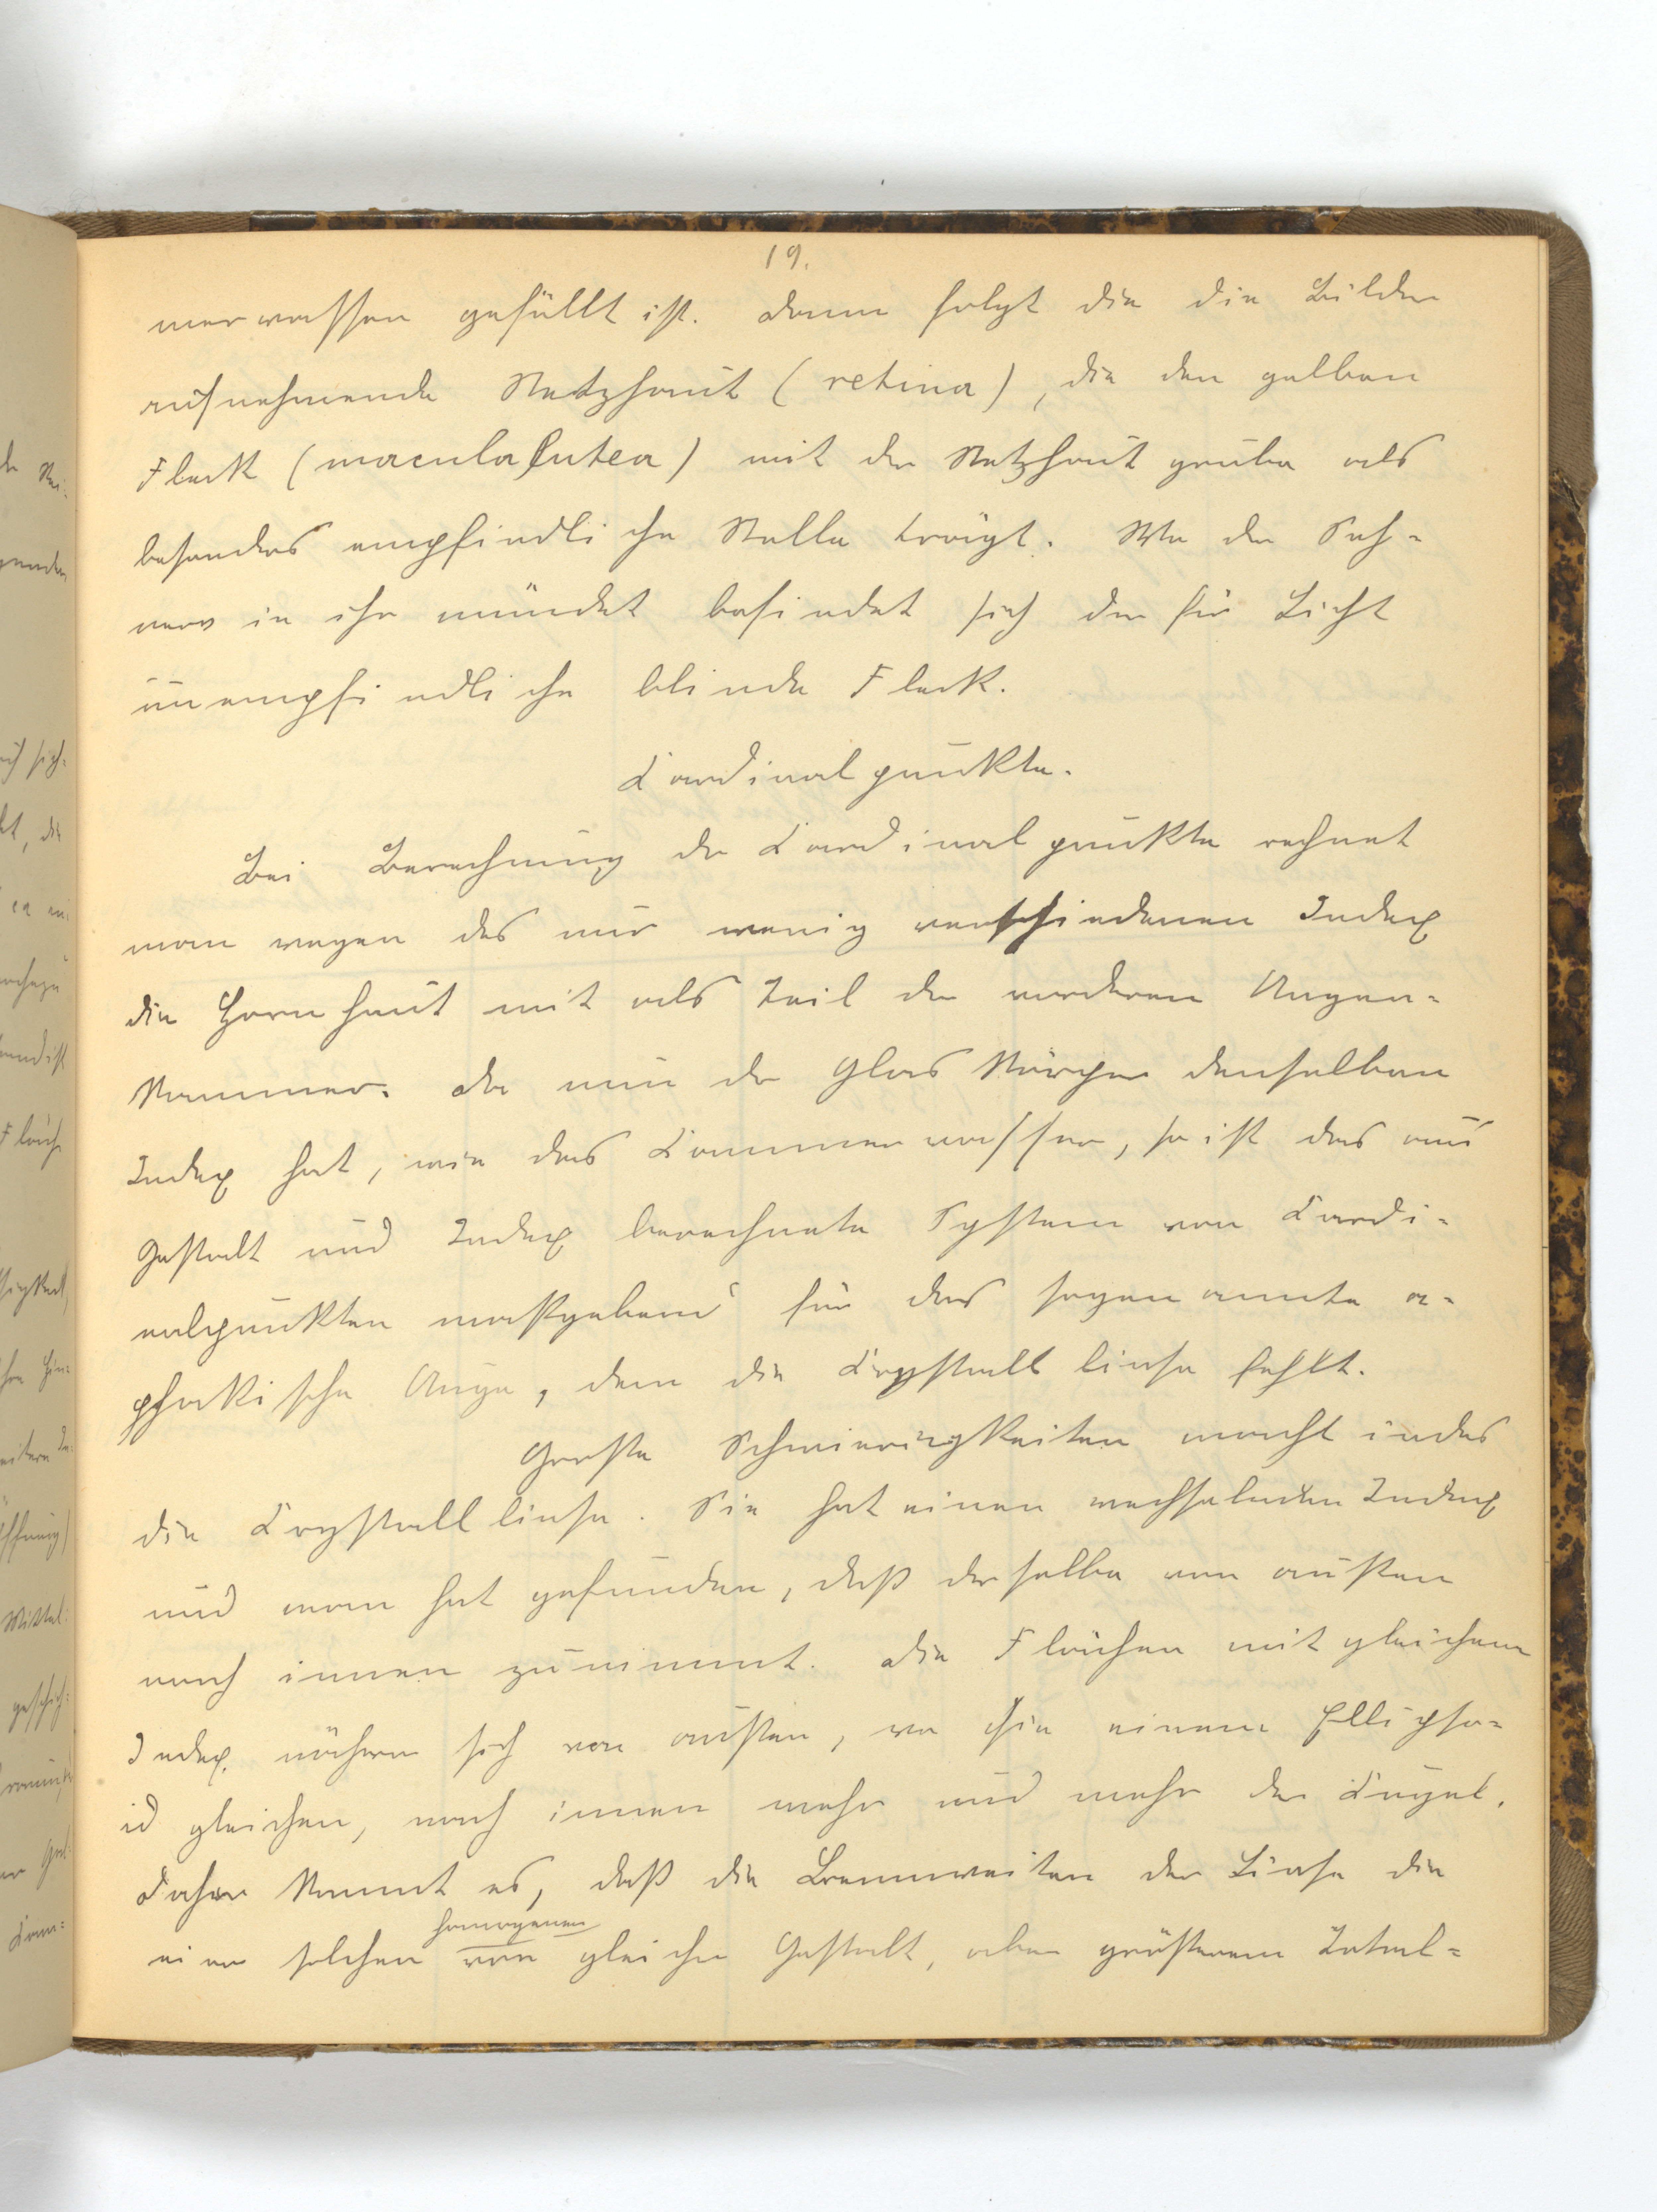 19.
merwasser gefüllt ist. Dann folgt die die Bilder
aufnehmende Netzhaut (retina), die den gelben
Fleck (macula lutea) mit der Netzhaut grube als
besonders empfindliche Stelle trägt. Wo der Seh-
nerv in ihr mündet befindet sich der für Licht
unempfindliche blinde Fleck.
Cardinalpunkte.
Bei Berechnung der Cardinalpunkte rechnet
man wegen des nur wenig verschiedenen Index
die Hornhaut mit als Teil der vorderen Augen-
kammer. Da nun der Glaskörper denselben
Index hat, wie das Cammerwasser, so ist das aus
Gestalt und Index berechnete System von Cardi-
nalpunkten maßgebend für das sogenannte a-
phakische Auge, dem die Crystalllinse fehlt.
Große Schwierigkeiten macht indes
die Crystalllinse. Sie hat einen wechselnden Index
und man hat gefunden, daß derselbe von außen
nach innen zunimmt. Die Flächen mit gleichem
Index nähern sich von außen, wo sie einem Ellipso-
id gleichen, nach innen mehr und mehr der Cugel.
Daher kommt es, daß die Brennweiten der Linse die
homogenen
einer solchen von gleicher Gestalt, aber größerem Total-